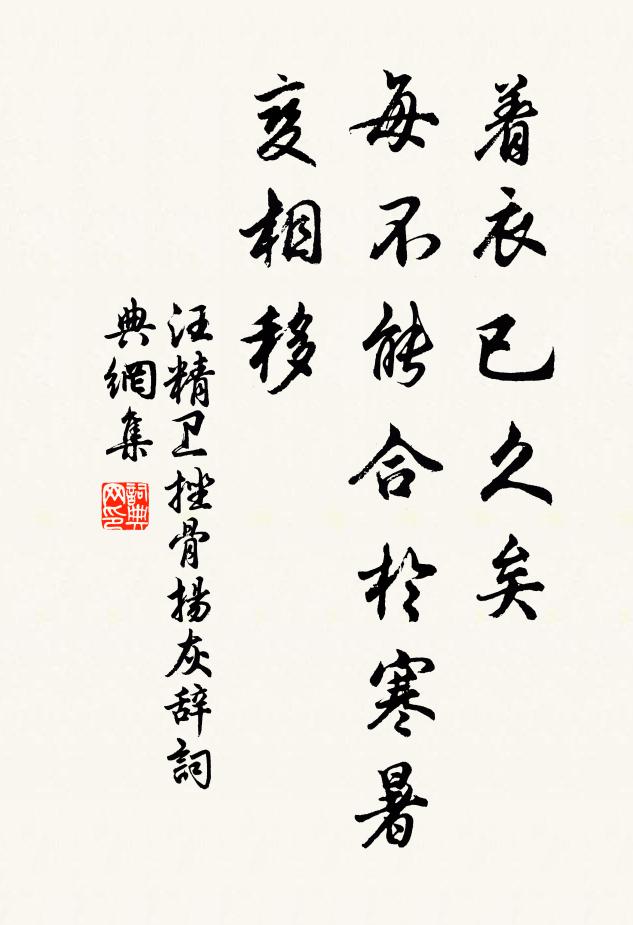 着衣已久矣
每不能合於寒暑
变相移
汪精卫挫骨揚灰辞詞
典網集
詞典网印